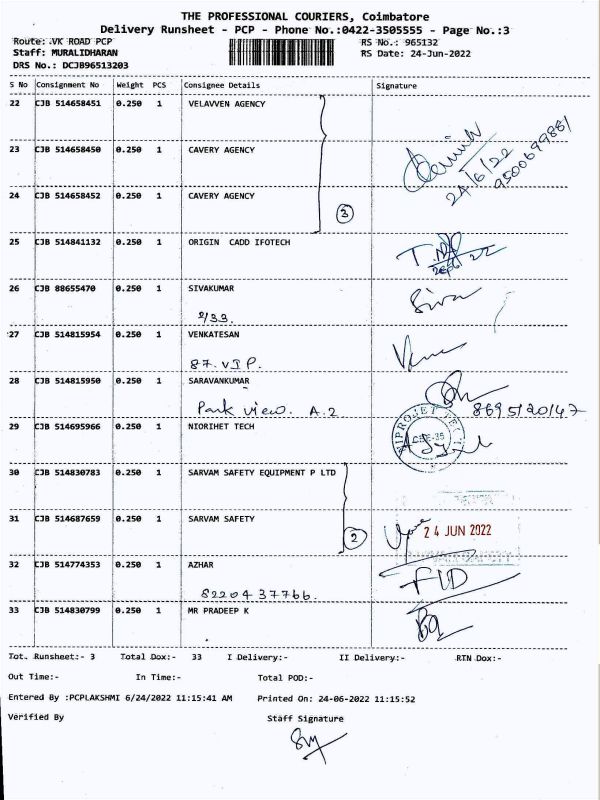 THE PROFESSIONAL COURIERS, Coimbatore
Delivery Runsheet - PCP - Phone No.:0422-3505555 - Page No.:3
Route: .VK ROAD PCP RS No.: 965132
Staff: MURALIDHARAN RS Date: 24-Jun-2022
DRS No.: DCJB96513203
S No Consignment No Weight PCS Consignee Details Signature
22 CJB 514658451 0.250 1 VELAVVEN AGENCY
23 CJB 514658450 0.250 1 CAVERY AGENCY
24/6/22
24 CJB 514658452 0.250 1 CAVERY AGENCY
3
25 CJB 514841132 0.250 1 ORIGIN CADD IFOTECH
26 CJB 88655470 0.250 1 SIVAKUMAR Siva
2/33.
27 CJB 514815954 0.250 1 VENKATESAN
87. VIP.
28 CJB 514815950 0.250 1 SARAVANKUMAR
Park view. A.2 8695120147
29 CJB 514695966 0.250 1 NIORIHET TECH
30 CJB 514830783 0.250 1 SARVAM SAFETY EQUIPMENT P LTD
31 CJB 514687659 0.250 1 SARVAM SAFETY
2 24 JUN 2022
32 CJB 514774353 0.250 1 AZHAR
8220437766.
33 CJB 514830799 0.250 1 MR PRADEEP K
Tot. Runsheet:- 3 Total Dox:- 33 I Delivery:- II Delivery:- RTN Dox:-
Out Time:- In Time:- Total POD:-
Entered By :PCPLAKSHMI 6/24/2022 11:15:41 AM Printed On: 24-06-2022 11:15:52
Verified By Staff Signature